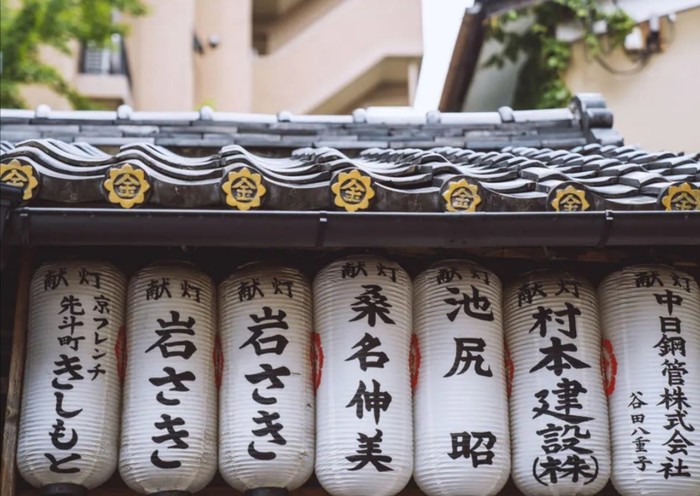 金
金
金
金
金
金
金
献灯
京フレンチ
先斗町
きしもと
献灯
岩さき
献灯
岩さき
献灯
桑名伸美
献灯
池尻 昭
献灯
村本建設(株)
献灯
中日鋼管株式会社
谷田八重子